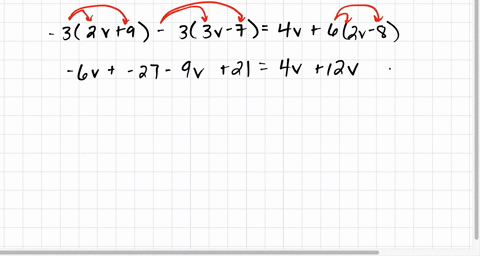 -3(2v+9) - 3(3v-7) = 4v + 6(2v-8)
-6v + -27 - 9v +21 = 4v +12v